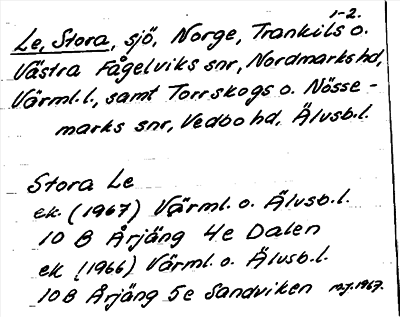 1-2.
Le, Stora, sjö, Norge, Trankils o.
Västra Fågelviks snr, Nordmarks hd,
Värml.l., samt Torrskogs o. Nösse-
marks snr, Vedbo hd, Älvsb.l.
Stora Le
ek. (1967) Värml. o. Älvsb.l.
10 B Årjäng 4e Dalen
ek (1966) Värml. o. Älvsb.l.
10B Årjäng 5e Sandviken maj.1967.